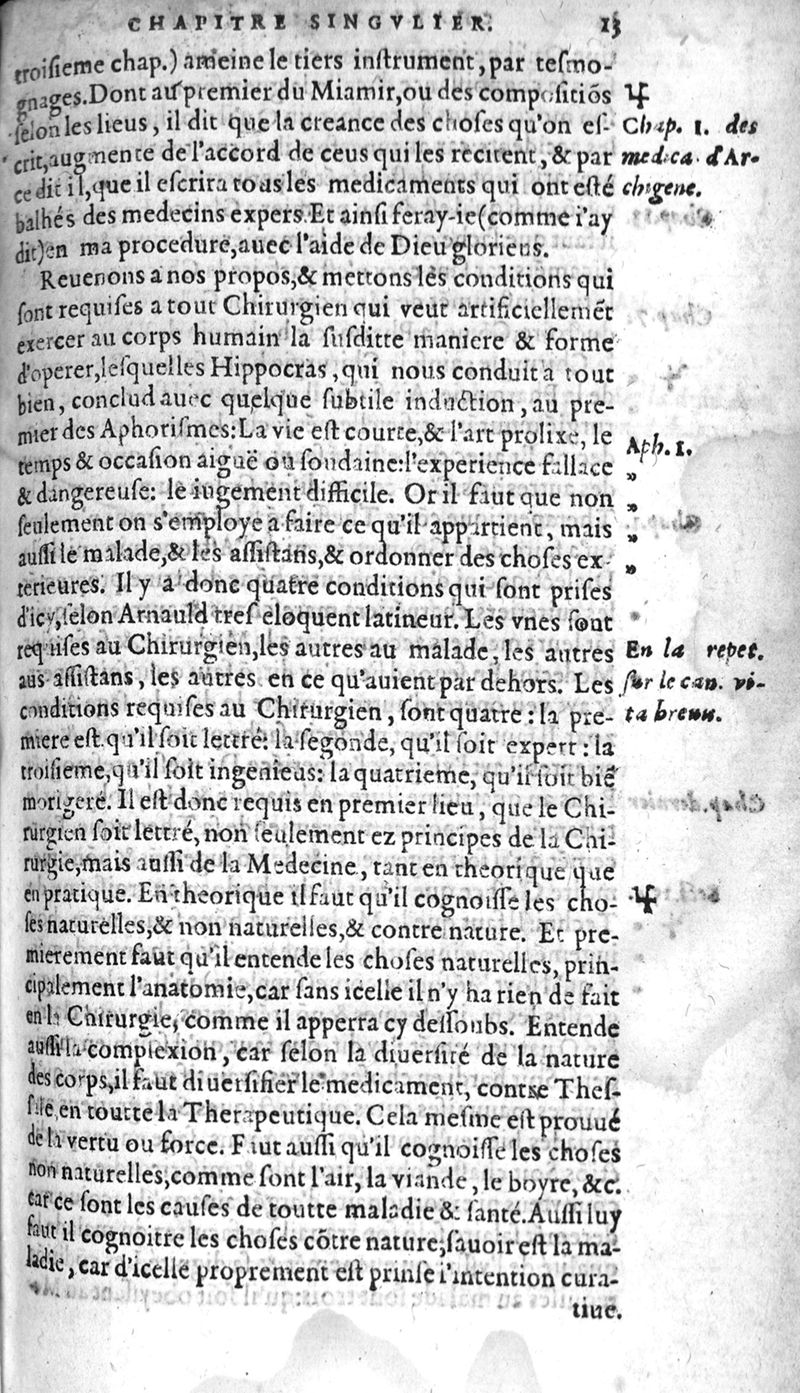 CHAPITRE SINGVLIER. 13
troiſieme chap.) ameine le tiers inſtrument, par teſmo-
gnages. Dont au premier du Miamir, ou des compoſitiõs
ſelon les lieus, il dit que la creance des choſes qu'on eſ-
Chap. 1. des
crit, augmente de l'accord de ceus qui les recitent, & par
medica. d'Ar-
ce dit il, que il eſcrira tous les medicaments qui ont eſté
chigene.
balhés des medecins expers. Et ainſi feray-ie (comme i'ay
dit) en ma procedure, auec l'aide de Dieu glorieus.
Reuenons a nos propos, & mettons les conditions qui
ſont requiſes a tout Chirurgien qui veut artificiellemẽt
exercer au corps humain la ſuſditte maniere & forme
d'operer, leſquelles Hippocras, qui nous conduit a tout
bien, conclud auec quelque ſubtile induction, au pre-
mier des Aphoriſmes: La vie eſt courte, & l'art prolixe, le
Aph. 1.
temps & occaſion aiguë ou ſoudaine: l'experience fallace
„
& dangereuſe: le iugement difficile. Or il faut que non
„
ſeulement on s'employe a faire ce qu'il appartient, mais
„
auſſi le malade, & les aſſiſtans, & ordonner des choſes ex-
„
terieures. Il y a donc quatre conditions qui ſont priſes
d'icy, ſelon Arnauld treſ eloquent latineur. Les vnes ſont
requiſes au Chirurgien, les autres au malade, les autres
En la repet.
aus aſſiſtans, les autres en ce qu'auient par dehors. Les
ſur le can. vi-
conditions requiſes au Chirurgien, ſont quatre: la pre-
ta breuis.
miere eſt qu'il ſoit lettré: la ſegonde, qu'il ſoit expert: la
troiſieme, qu'il ſoit ingenieus: la quatrieme, qu'il ſoit biẽ
morigeré. Il eſt donc requis en premier lieu, que le Chi-
rurgien ſoit lettré, non ſeulement ez principes de la Chi-
rurgie, mais auſſi de la Medecine, tant en theorique que
en pratique. En theorique il faut qu'il cognoiſſe les cho-
ſes naturelles, & non naturelles, & contre nature. Et pre-
mierement faut qu'il entende les choſes naturelles, prin-
cipalement l'anatomie, car ſans icelle il n'y ha rien de fait
en la Chirurgie, comme il apperra cy deſſoubs. Entende
auſſi la complexion, car ſelon la diuerſité de la nature
des corps, il faut diuerſifier le medicament, contre Theſ-
ſale, en toutte la Therapeutique. Cela meſme eſt prouué
de la vertu ou force. Faut auſſi qu'il cognoiſſe les choſes
non naturelles, comme ſont l'air, la viande, le boyre, &c.
car ce ſont les cauſes de toutte maladie & ſanté. Auſſi luy
faut il cognoitre les choſes cõtre nature, ſauoir eſt la ma-
ladie, car d'icelle proprement eſt prinſe l'intention cura-
tiue.